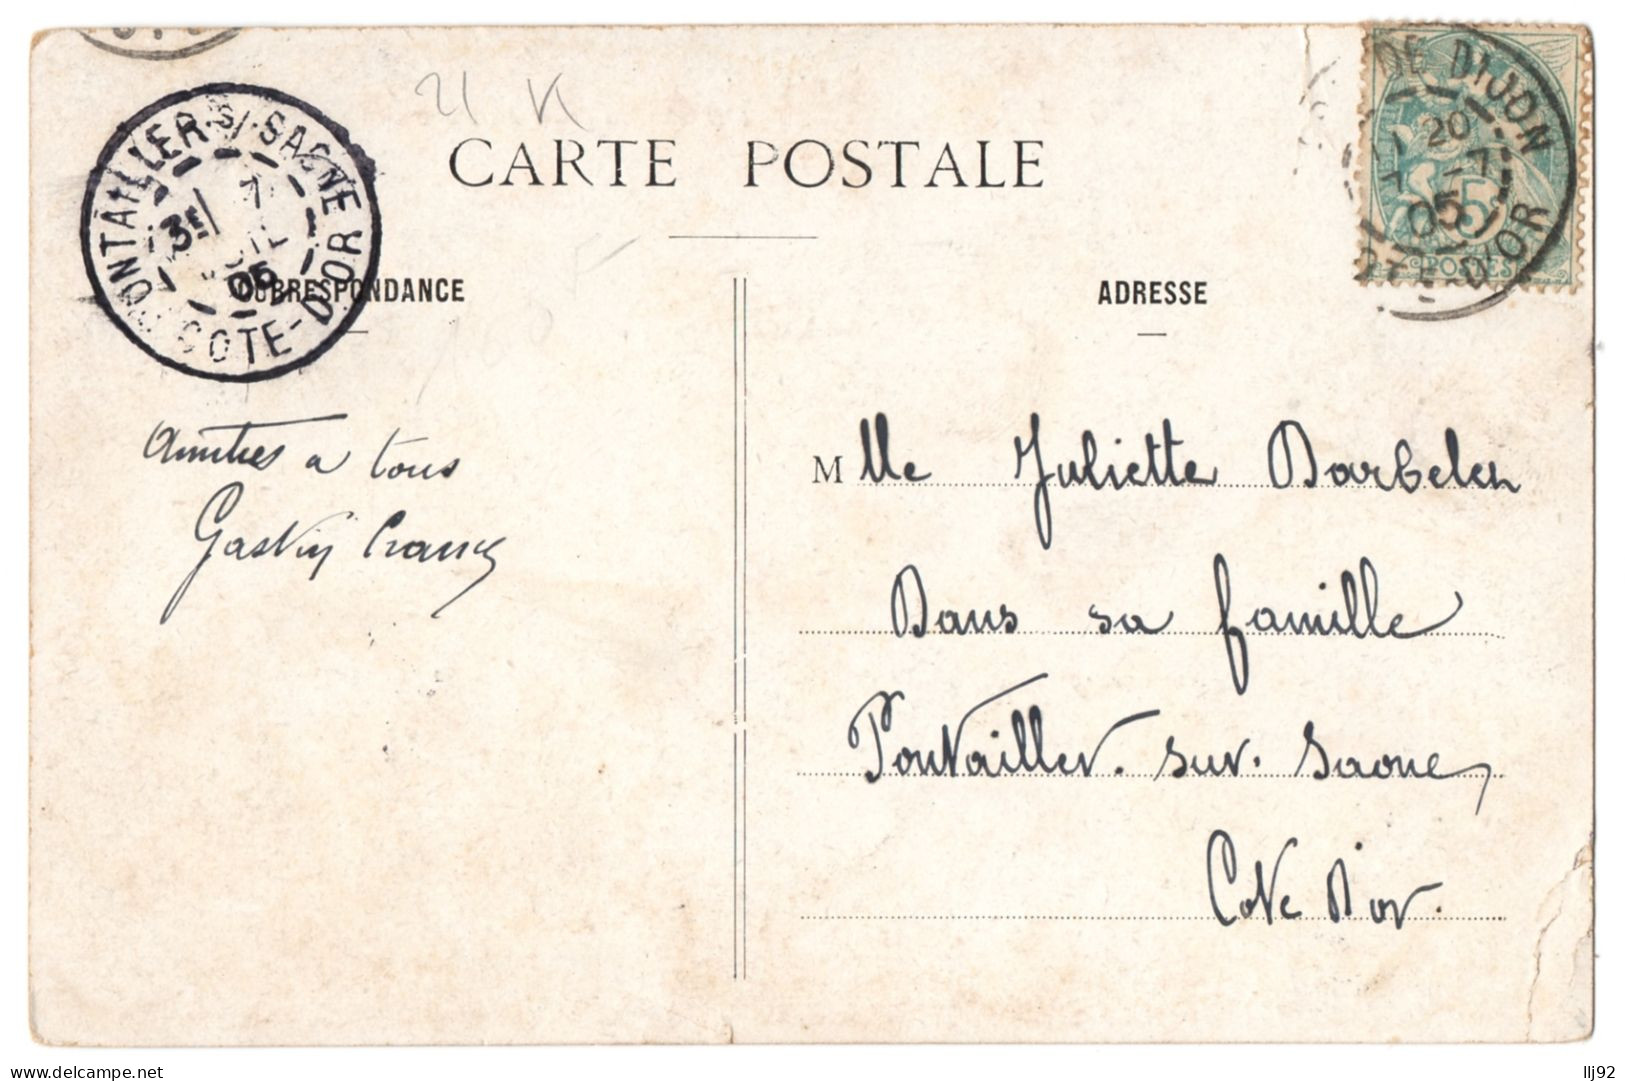 CARTE POSTALE
CORRESPONDANCE
ADRESSE
PONTAILLER-S/-SAONE
3E
05
COTE-D'OR
DE DIJON
11 20
7 -7
05
COTE-D'OR
5
POSTES
Amitiés a tous
Gaston
Mlle Juliette Barbelen
Dans sa famille
Pontailler. sur. Saone
Cote D'or.
llj92